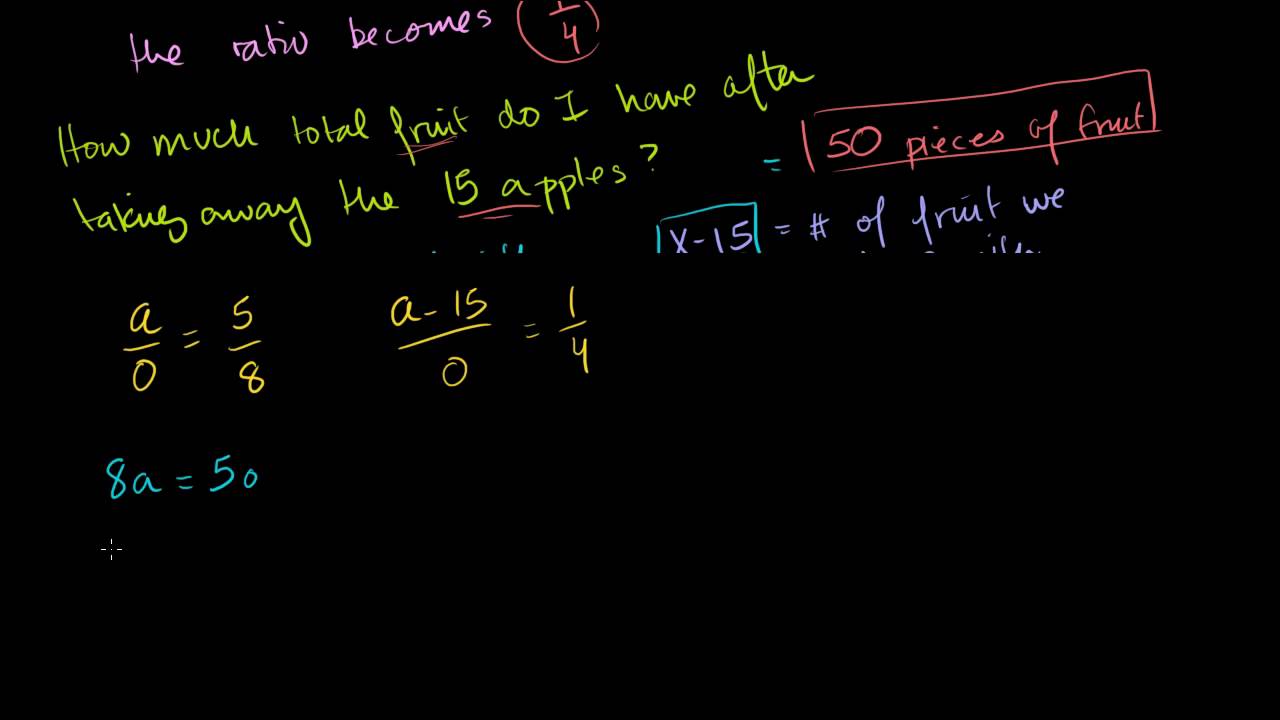 the ratio becomes 1/4
How much total fruit do I have after
taking away the 15 apples?
= 50 pieces of fruit
x-15 = # of fruit we
a/o = 5/8
a-15/o = 1/4
8a = 5o